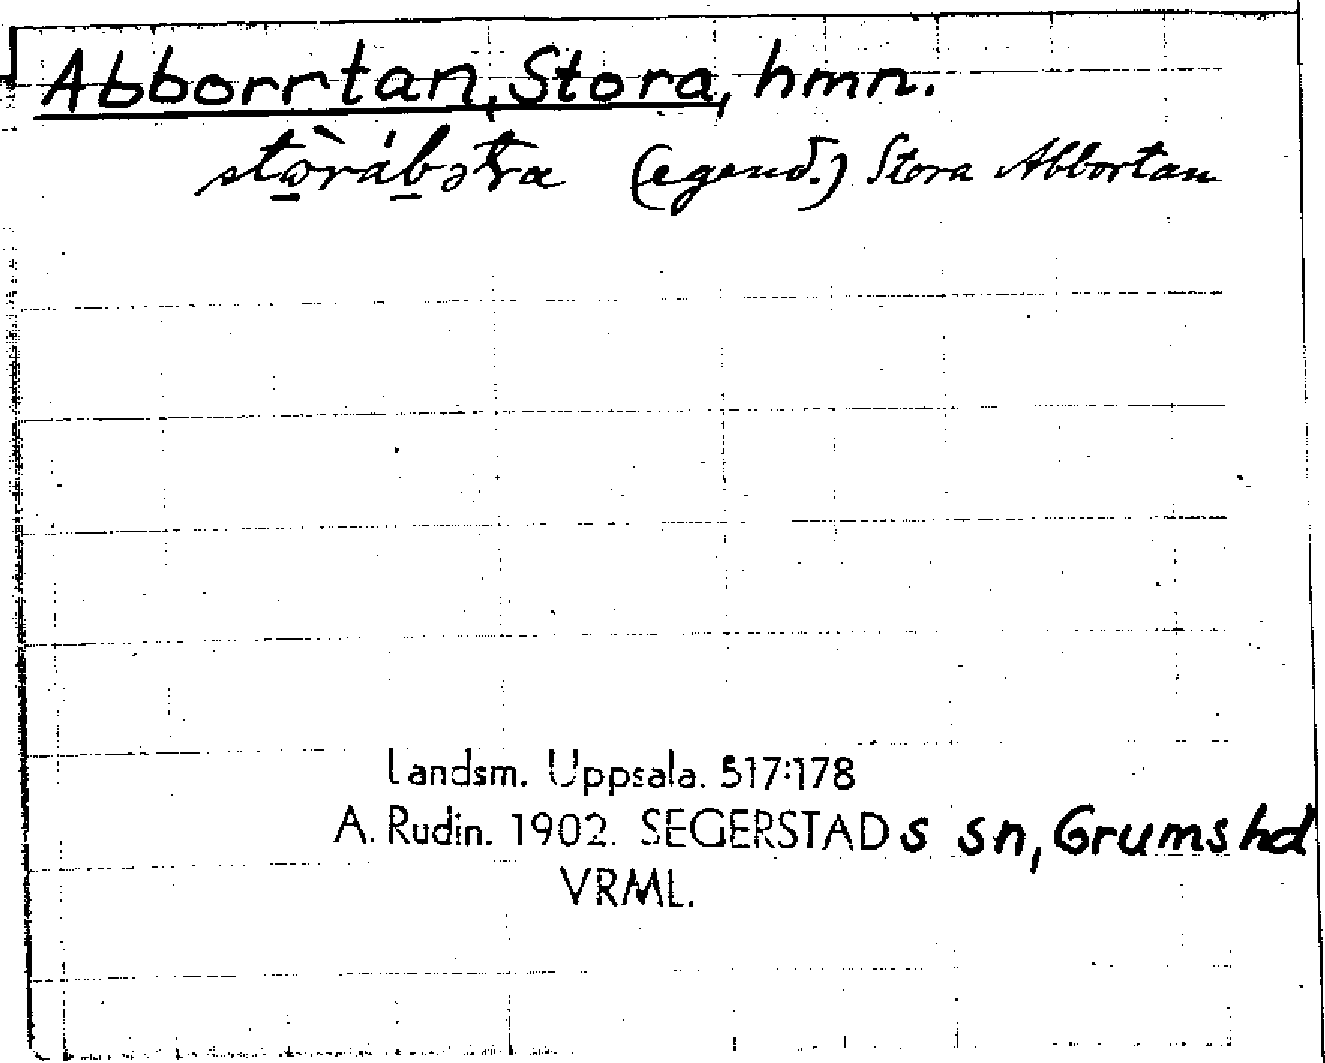 Abborrtan, Stora, hmn.
(egend.) Stora Abbortan
Landsm. Uppsala. 517:178
A. Rudin. 1902. SEGERSTADs sn, Grums hd
VRML.